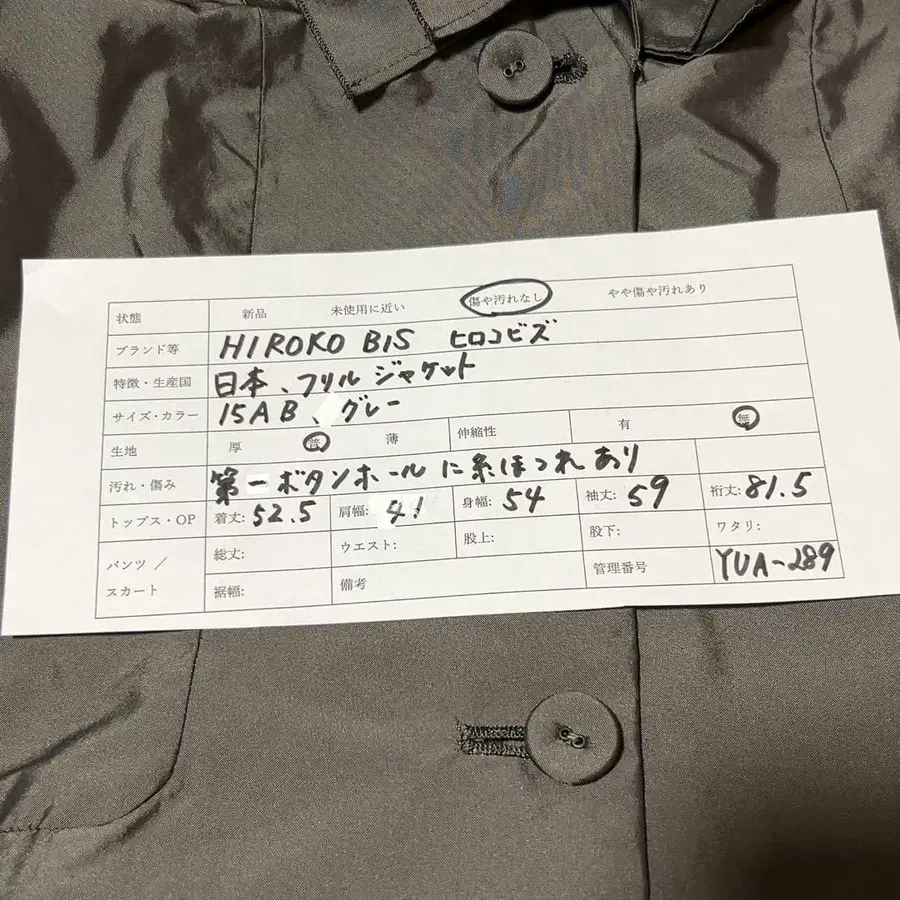 状態 新品 未使用に近い 傷や汚れなし やや傷や汚れあり
ブランド等 HIROKO BIS ヒロコビズ
特徴・生産国 日本、フリル ジャケット
サイズ・カラー 15AB、グレー
生地 厚 普 薄 伸縮性 有 無
汚れ・傷み 第一ボタンホールに糸ほつれあり
トップス・OP 着丈: 52.5 肩幅: 41 身幅: 54 袖丈: 59 裄丈: 81.5
パンツ／スカート 総丈: ウエスト: 股上: 股下: ワタリ:
裾幅: 備考 管理番号 YUA-289